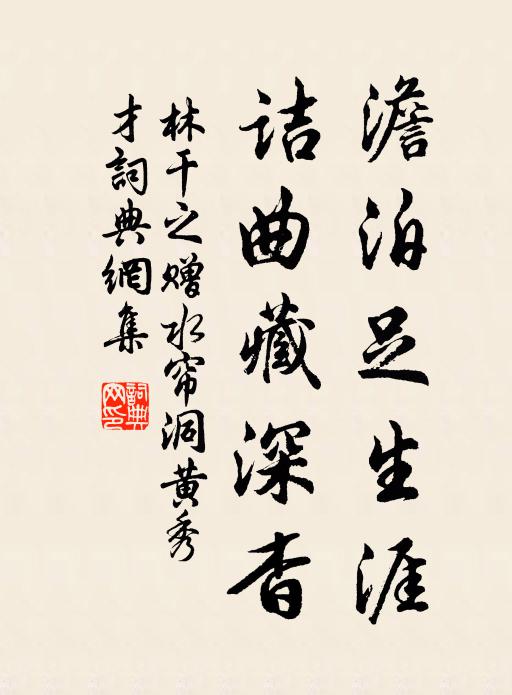 澹泊足生涯
詰曲藏深杳
林干之赠水帘洞黄秀
才詞典網集
詞典
网印